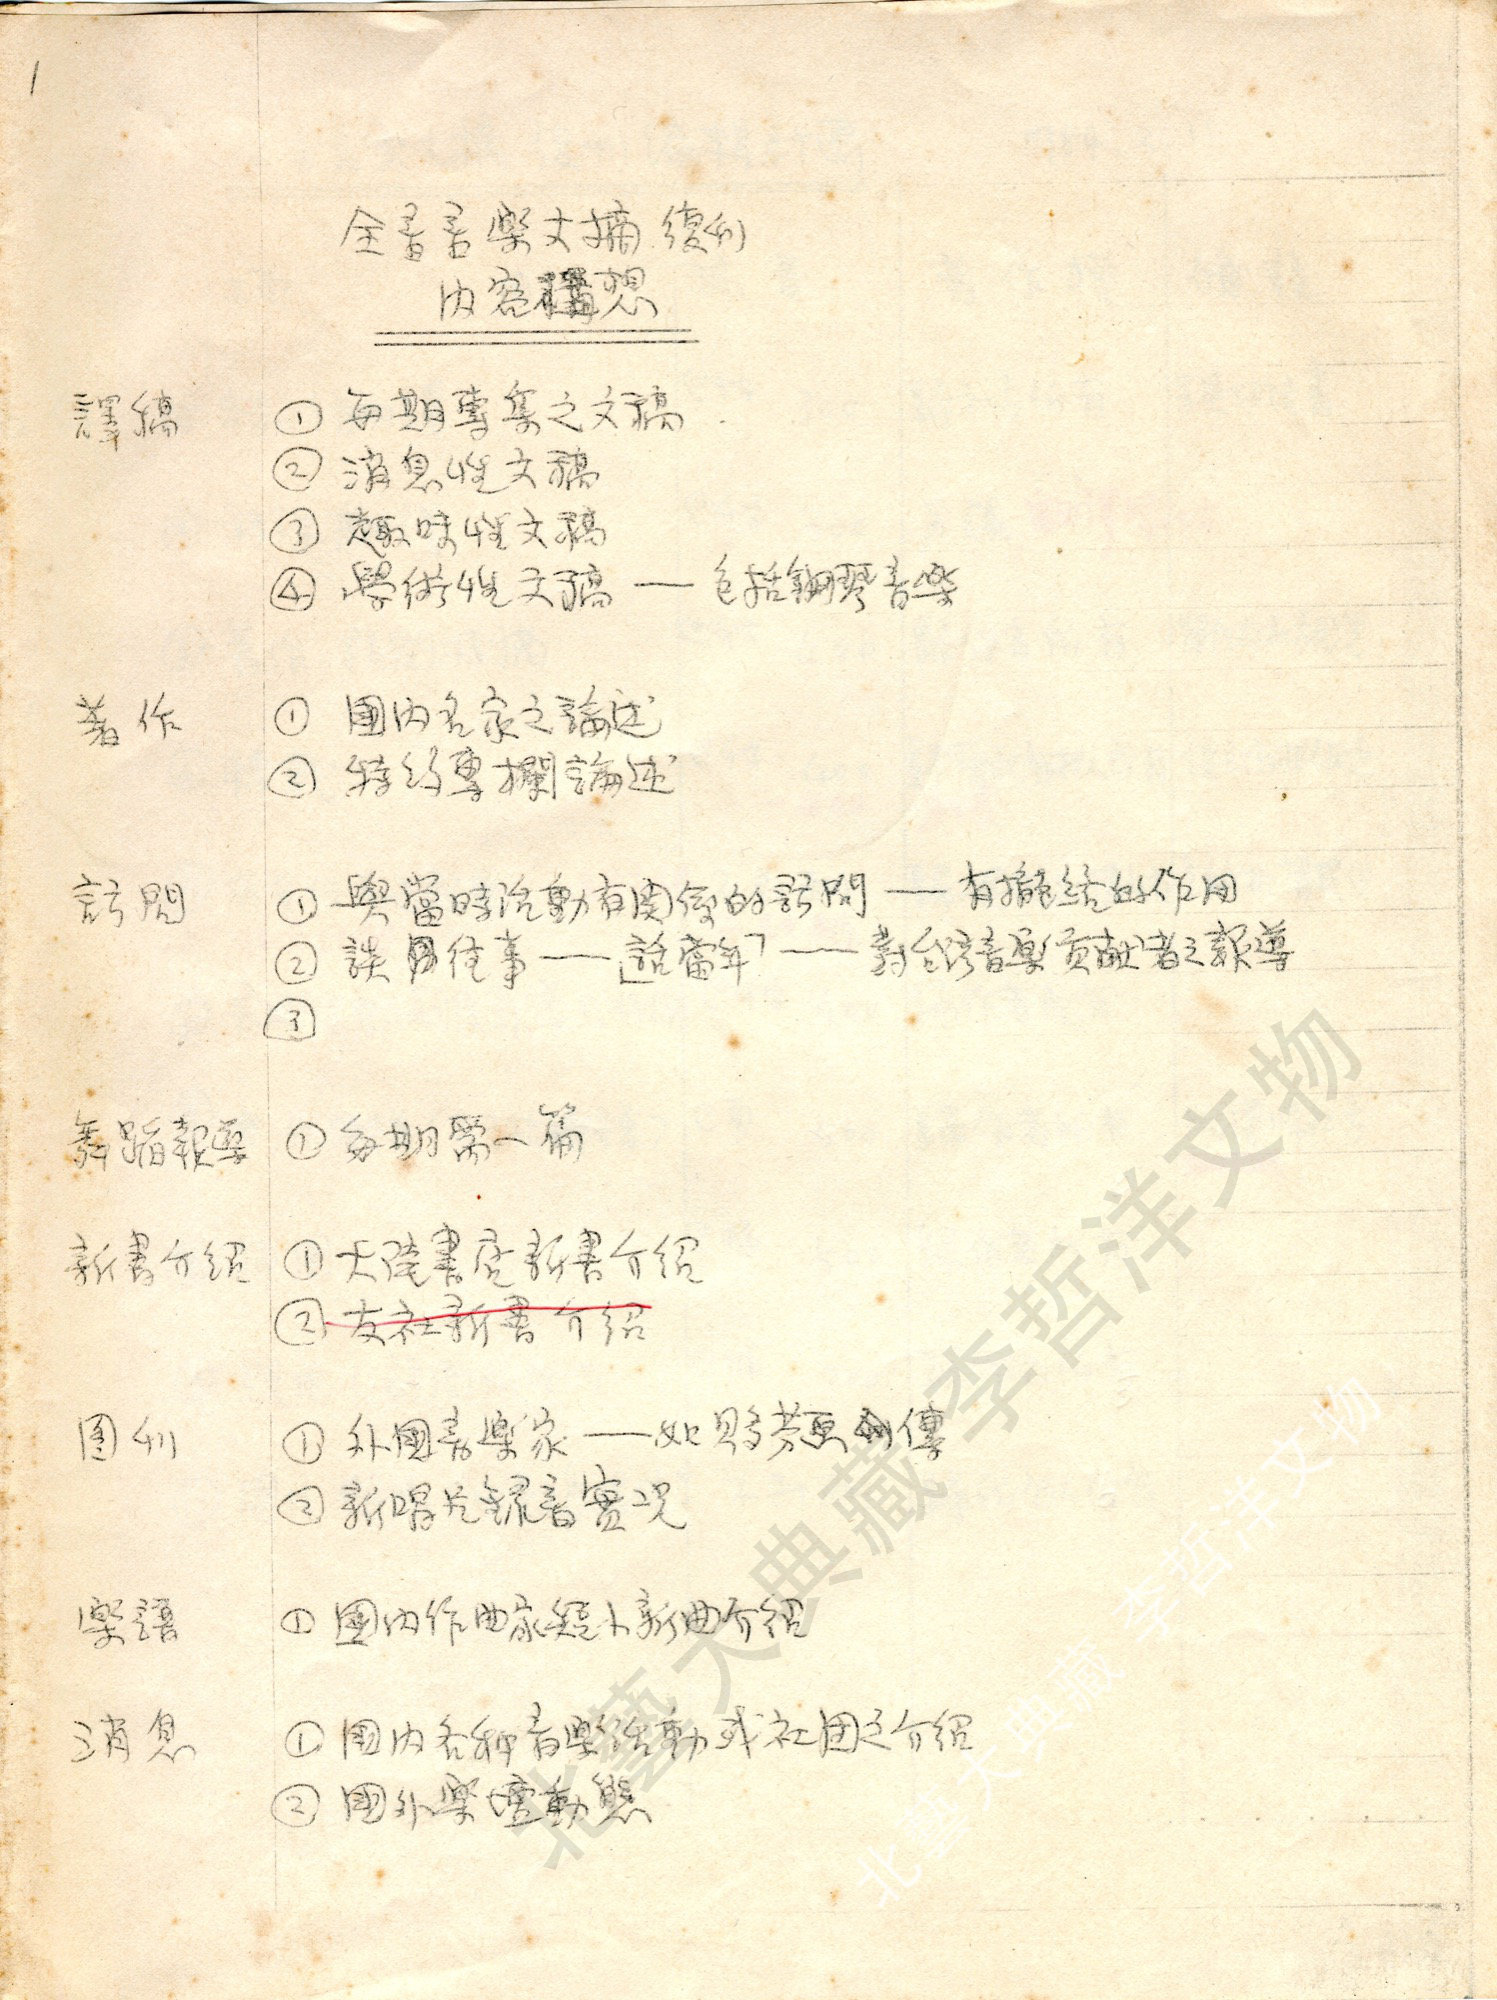 1
全音音楽文摘 復刊
內容構想
譯稿 ① 每期專集之文稿
② 消息性文稿
③ 趣味性文稿
④ 學術性文稿 — 包括鋼琴音楽
著作 ① 國內名家之論述
② 特約專欄論述
訪問 ① 與當時活動有関係的訪問 — 有總結的作用
② 談往事 —「話當年」— 對台灣音楽貢献者之報導
③
舞蹈報導 ① 每期第一篇
新書介紹 ① 大陸書店新書介紹
② 友社新書介紹
圖刊 ① 外國音楽家 — 如貝多芬畫傳
② 新唱片錄音實况
楽譜 ① 國內作曲家短小新曲介紹
消息 ① 國內各種音楽活動或社團之介紹
② 國外楽壇動態
北藝大典藏 李哲洋文物
北藝大典藏 李哲洋文物